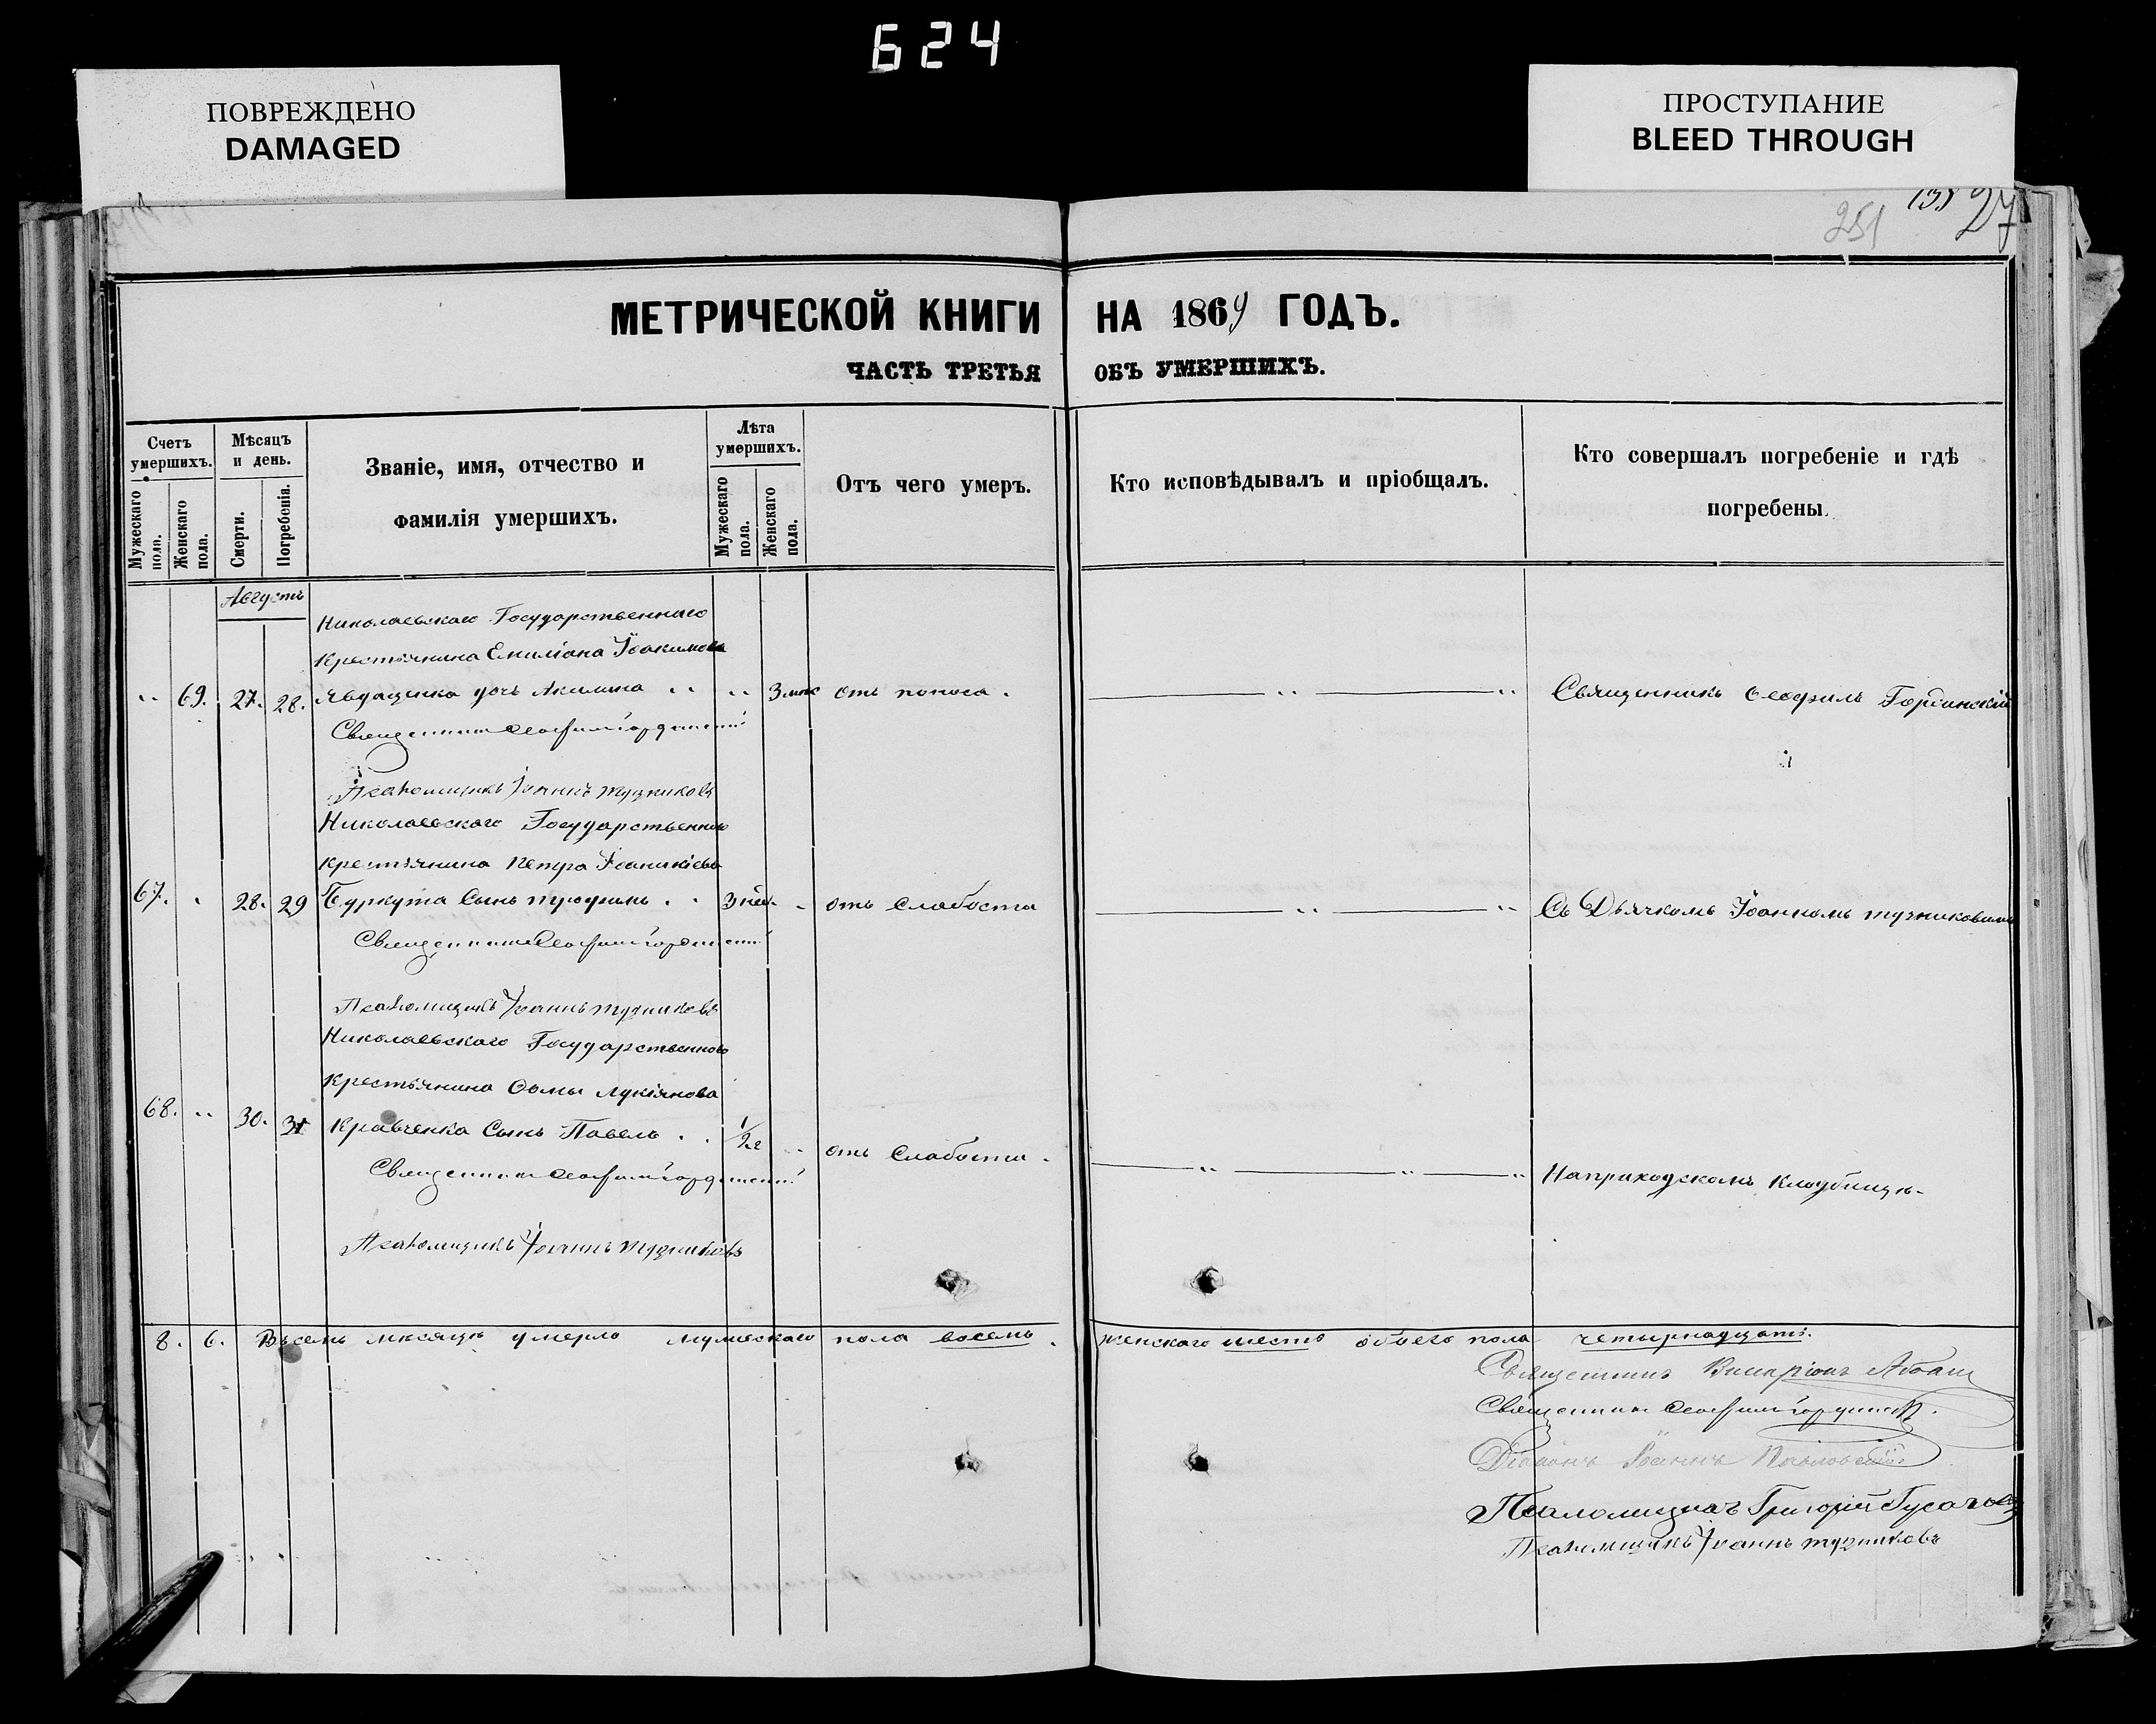 624
ПОВРЕЖДЕНО
DAMAGED
ПРОСТУПАНИЕ
BLEED THROUGH
251
27
МЕТРИЧЕСКОЙ КНИГИ НА 1869 ГОДЪ.
ЧАСТЬ ТРЕТЬЯ ОБЪ УМЕРШИХЪ.
Счетъ умершихъ.
Мужескаго пола.
Женскаго пола.
Мѣсяцъ и день.
Смерти.
Погребенія.
Званіе, имя, отчество и
фамилія умершихъ.
Лѣта умершихъ.
Мужескаго пола.
Женскаго пола.
Отъ чего умеръ.
Кто исповѣдывалъ и пріобщалъ.
Кто совершалъ погребеніе и гдѣ
погребены.
Августъ
Николаевскаго Государственнаго
Крестьянина Емиліана Іоакимова
69. 27. 28. Явдащенка дочь Акилина 3 мѣс отъ поноса. Священникъ Ѳеофилъ Гординскій
Священникъ Ѳеофилъ Гординскій
Псаломщикъ Іоаннъ Тучниковъ
Николаевскаго Государственнаго
Крестьянина Петра Іоаникіева
67. 28. 29 Буркута Сынъ Трофимъ 3 нед. отъ Слабости Съ Дьячкомъ Іоанномъ Тучниковымъ
Священникъ Ѳеофилъ Гординскій
Псаломщикъ Іоаннъ Тучниковъ
Николаевскаго Государственнаго
Крестьянина Ѳомы Лукіянова
68. 30. 31 Кравченка Сынъ Павелъ 1/2 г отъ Слабости. На приходскомъ Кладбищѣ.
Священникъ Ѳеофилъ Гординскій
Псаломщикъ Іоаннъ Тучниковъ
8. 6. Въ семъ мѣсяцѣ умерло мужескаго пола восемь. женскаго шесть обоего пола четырнадцать.
Священникъ
Священникъ Ѳеофилъ Гординскій
Діаконъ Іоаннъ
Псаломщикъ Григорій
Псаломщикъ Іоаннъ Тучниковъ